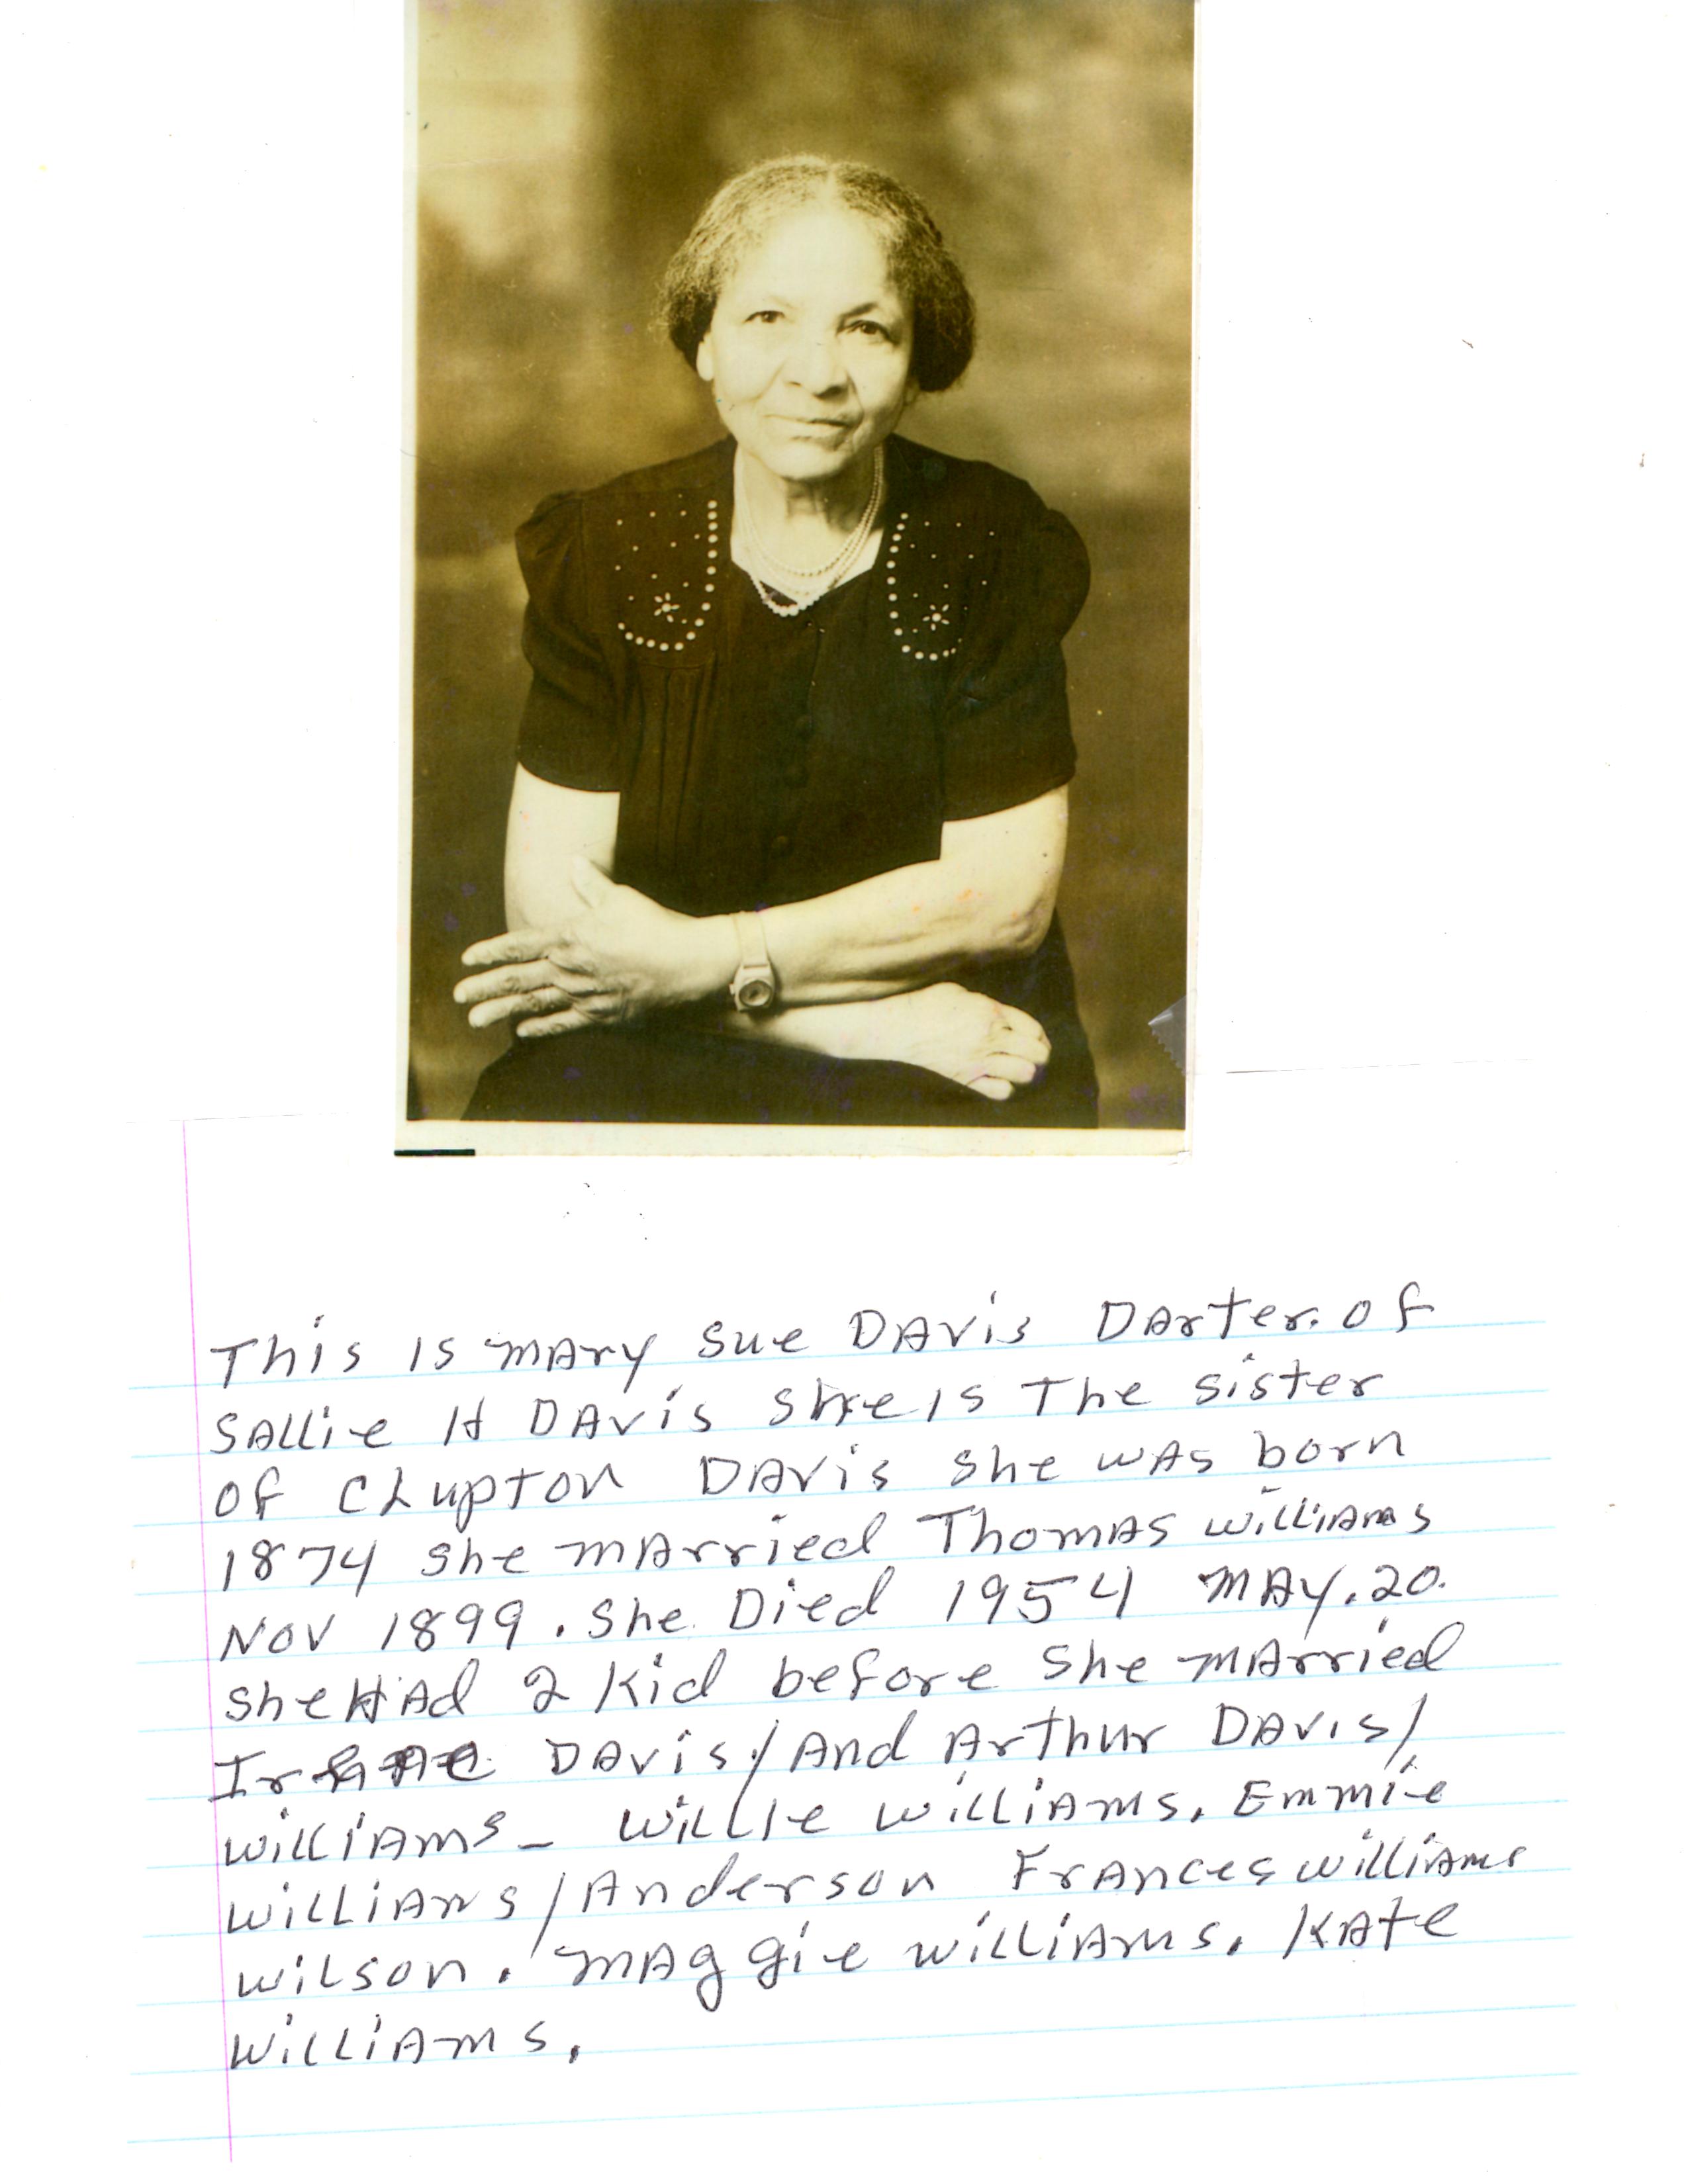 This is mary Sue DAvis DArter. of
SAllie H DAvis She is The sister
of CLupton DAvis she wAs born
1874 she mArried ThomAs williAms
Nov 1899. She. Died 1954 mAy. 20.
she HAd 2 Kid before She mArried
DAvis/And Arthur DAvis/
williAms - willie williAms. Emmie
williAms/Anderson FrAnces williAms
wilson. mAggie williAms. KAte
williAms.